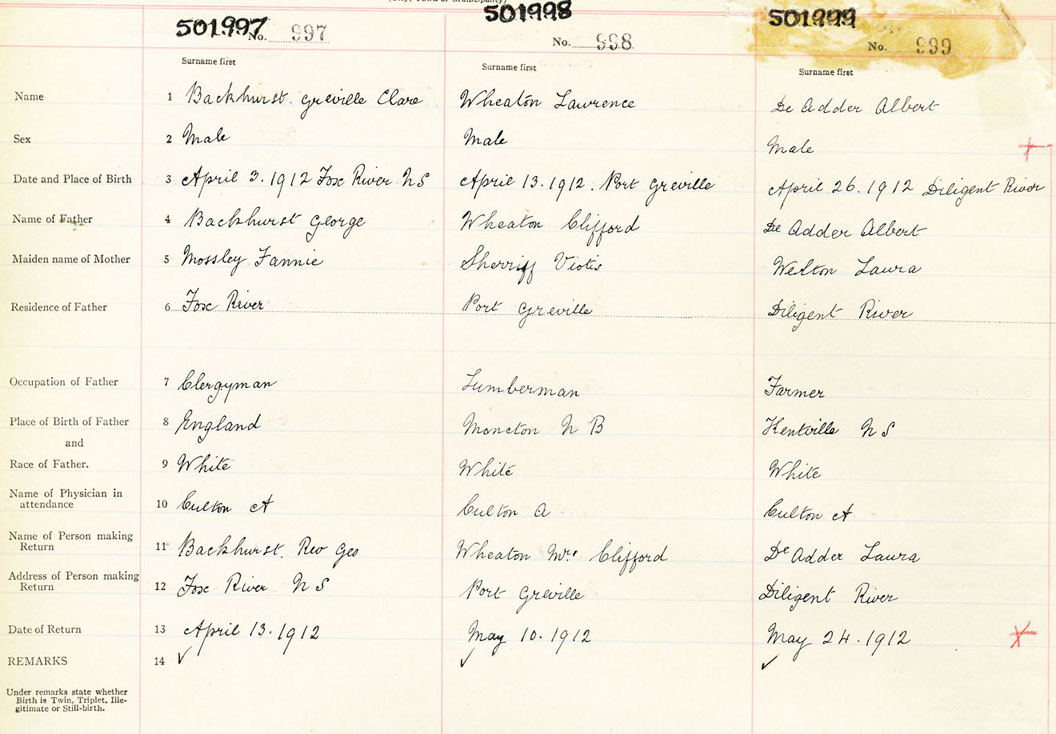 501997 501998 501999
No. 997 No. 998 No. 999
Surname first Surname first Surname first
Name 1 Backhurst. Greville Clare Wheaton Lawrence De Adder Albert
Sex 2 Male Male Male
Date and Place of Birth 3 April 3. 1912 Fox River N S April 13. 1912. Port Greville April 26. 1912 Diligent River
Name of Father 4 Backhurst George Wheaton Clifford De Adder Albert
Maiden name of Mother 5 Mossley Fannie Sherriff Laura
Residence of Father 6 Fox River Port Greville Diligent River
Occupation of Father 7 Clergyman Lumberman Farmer
Place of Birth of Father 8 England Moncton N B Kentville N S
and
Race of Father. 9 White White White
Name of Physician in
attendance 10 Culton A Culton A Culton A
Name of Person making
Return 11 Backhurst. Rev Geo Wheaton Mrs Clifford De Adder Laura
Address of Person making
Return 12 Fox River N S Port Greville Diligent River
Date of Return 13 April 13. 1912 May 10. 1912 May 24. 1912
REMARKS 14 ✓ ✓ ✓
Under remarks state whether
Birth is Twin, Triplet, Ille-
gitimate or Still-birth.